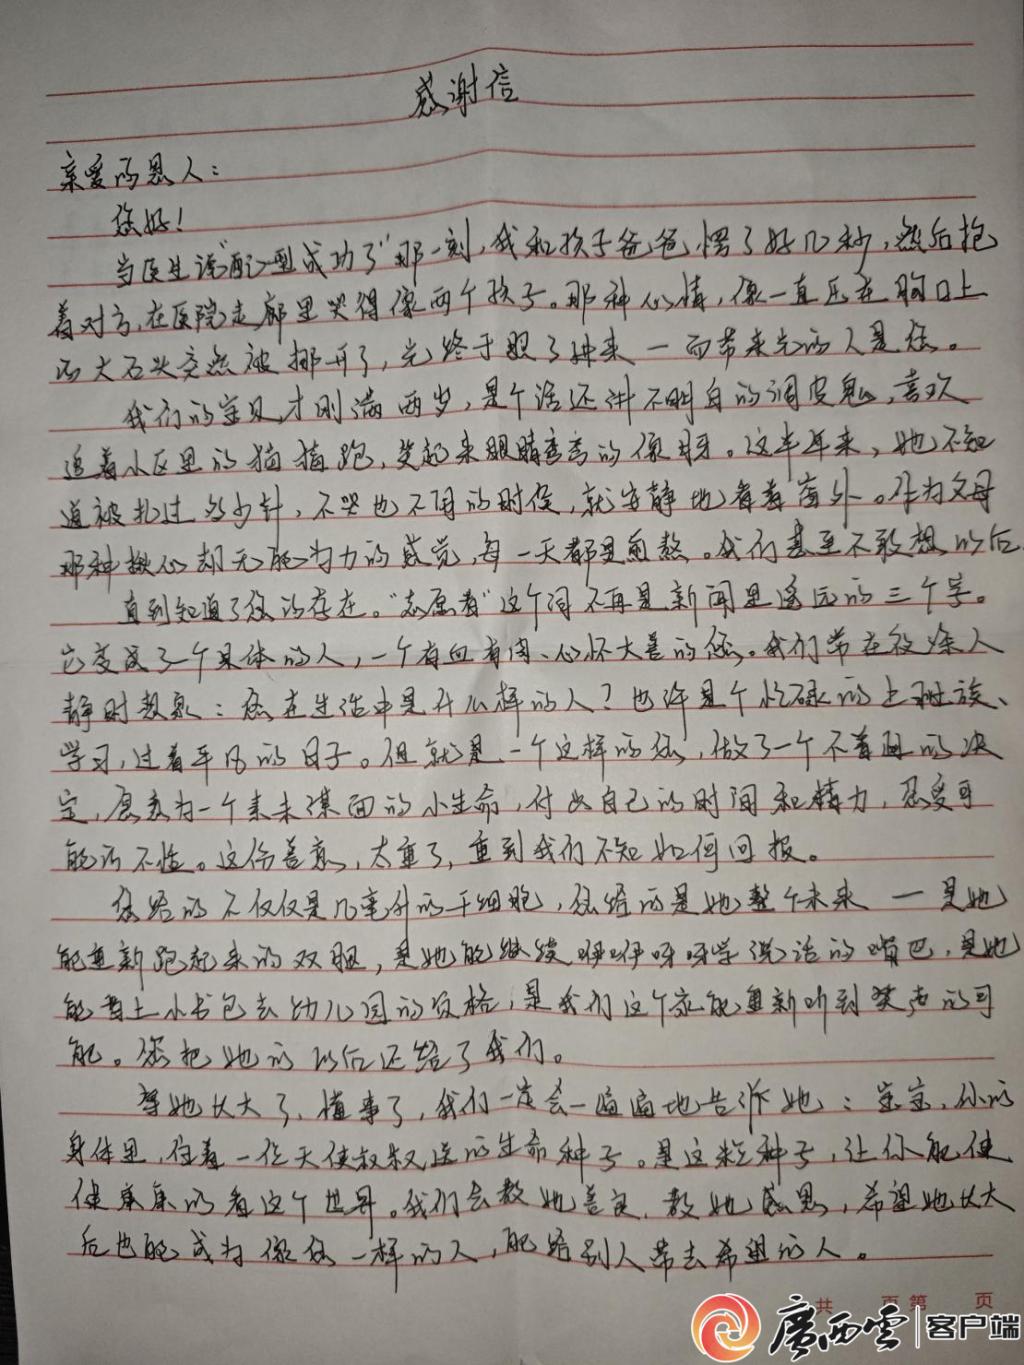 感谢信
亲爱的恩人：
您好！
当医生说“配型成功了”那一刻，我和孩子爸爸愣了好几秒，然后抱
着对方，在医院走廊里哭得像两个孩子。那种心情，像一直压在胸口上
的大石头突然被挪开了，光终于照了进来——而带来光的人是您。
我们的宝贝才刚满两岁，是个话还讲不明白的调皮鬼，喜欢
追着小区里的猫猫跑，笑起来眼睛弯弯的像月牙。这半年来，她不知
道被扎过多少针，不哭也不闹的时候，就安静地看着窗外。作为父母
那种揪心却无能为力的感觉，每一天都是煎熬。我们甚至不敢想以后
直到知道了您的存在。“志愿者”这个词不再是新闻里遥远的三个字。
它变成了一个具体的人，一个有血有肉、心怀大善的您。我们常在夜深人
静时想象：您在生活中是什么样的人？也许是个忙碌的上班族、
学习，过着平凡的日子。但就是一个这样的您，做了一个不普通的决
定，愿意为一个素未谋面的小生命，付出自己的时间和精力，忍受可
能的不适。这份善意，太重了，重到我们不知如何回报。
您给的不仅仅是几毫升的干细胞，您给的是她整个未来——是她
能重新跑起来的双腿，是她能继续咿咿呀呀学说话的嘴巴，是她
能背上小书包去幼儿园的资格，是我们这个家能重新听到笑声的可
能。您把她的以后还给了我们。
等她长大了，懂事了，我们一定会一遍遍地告诉她：宝宝，你的
身体里，住着一位天使叔叔送的生命种子。是这粒种子，让你能健
健康康的看这个世界。我们会教她善良，教她感恩，希望她长大
后也能成为像您一样的人，能给别人带去希望的人。
共 页 第 页
广西云 客户端